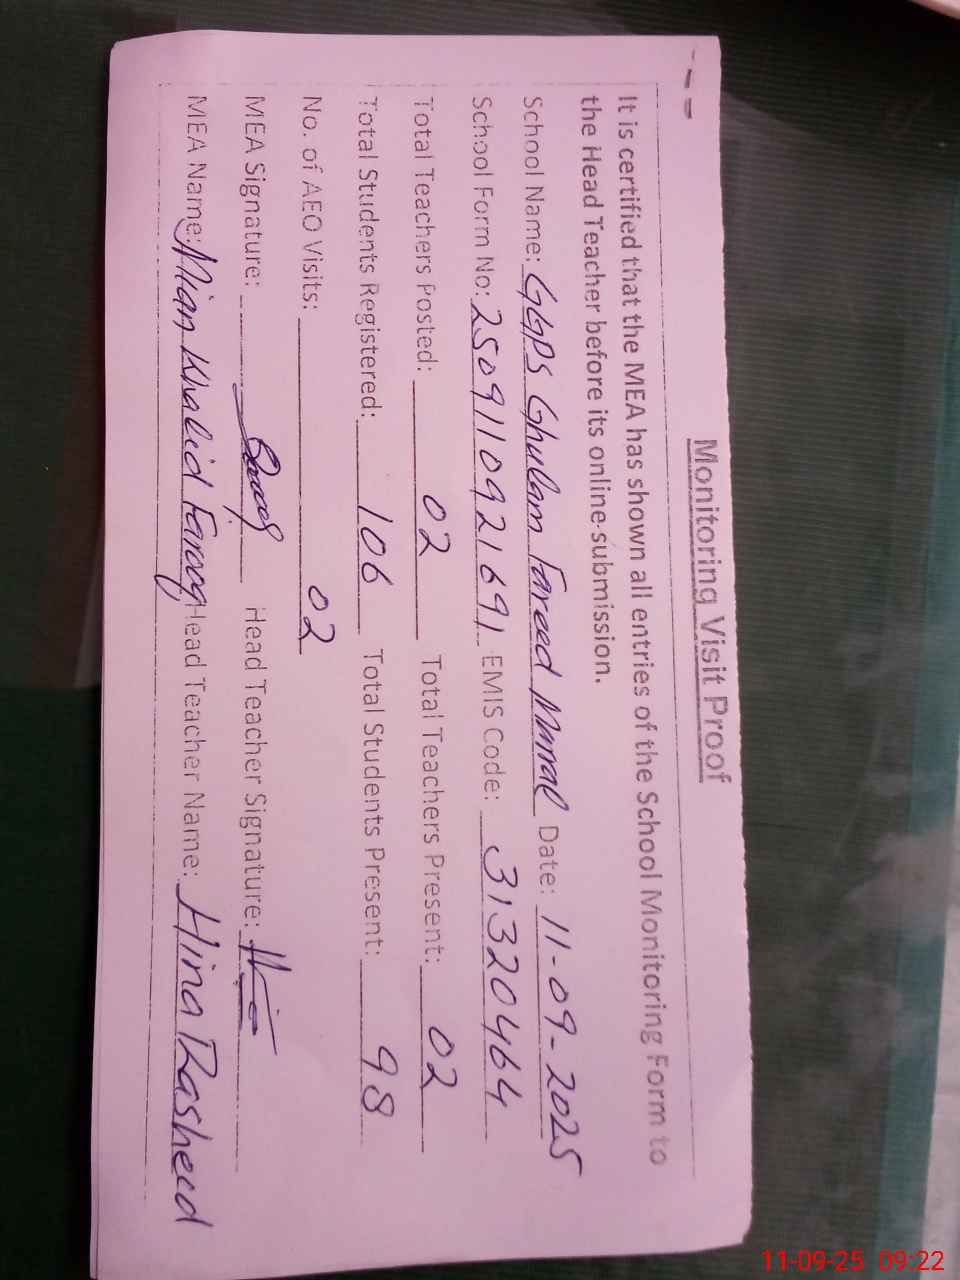 Monitoring Visit Proof
It is certified that the MEA has shown all entries of the School Monitoring Form to
the Head Teacher before its online submission.
School Name: GGPS Ghulam Fareed Marral Date: 11-09-2025
School Form No: 2509110921691 EMIS Code: 31320464
Total Teachers Posted: 02 Total Teachers Present: 02
Total Students Registered: 106 Total Students Present: 98
No. of AEO Visits: 02
MEA Signature: Head Teacher Signature:
MEA Name: Mian Khalid Farooq Head Teacher Name: Hina Rasheed
11-09-25 09:22